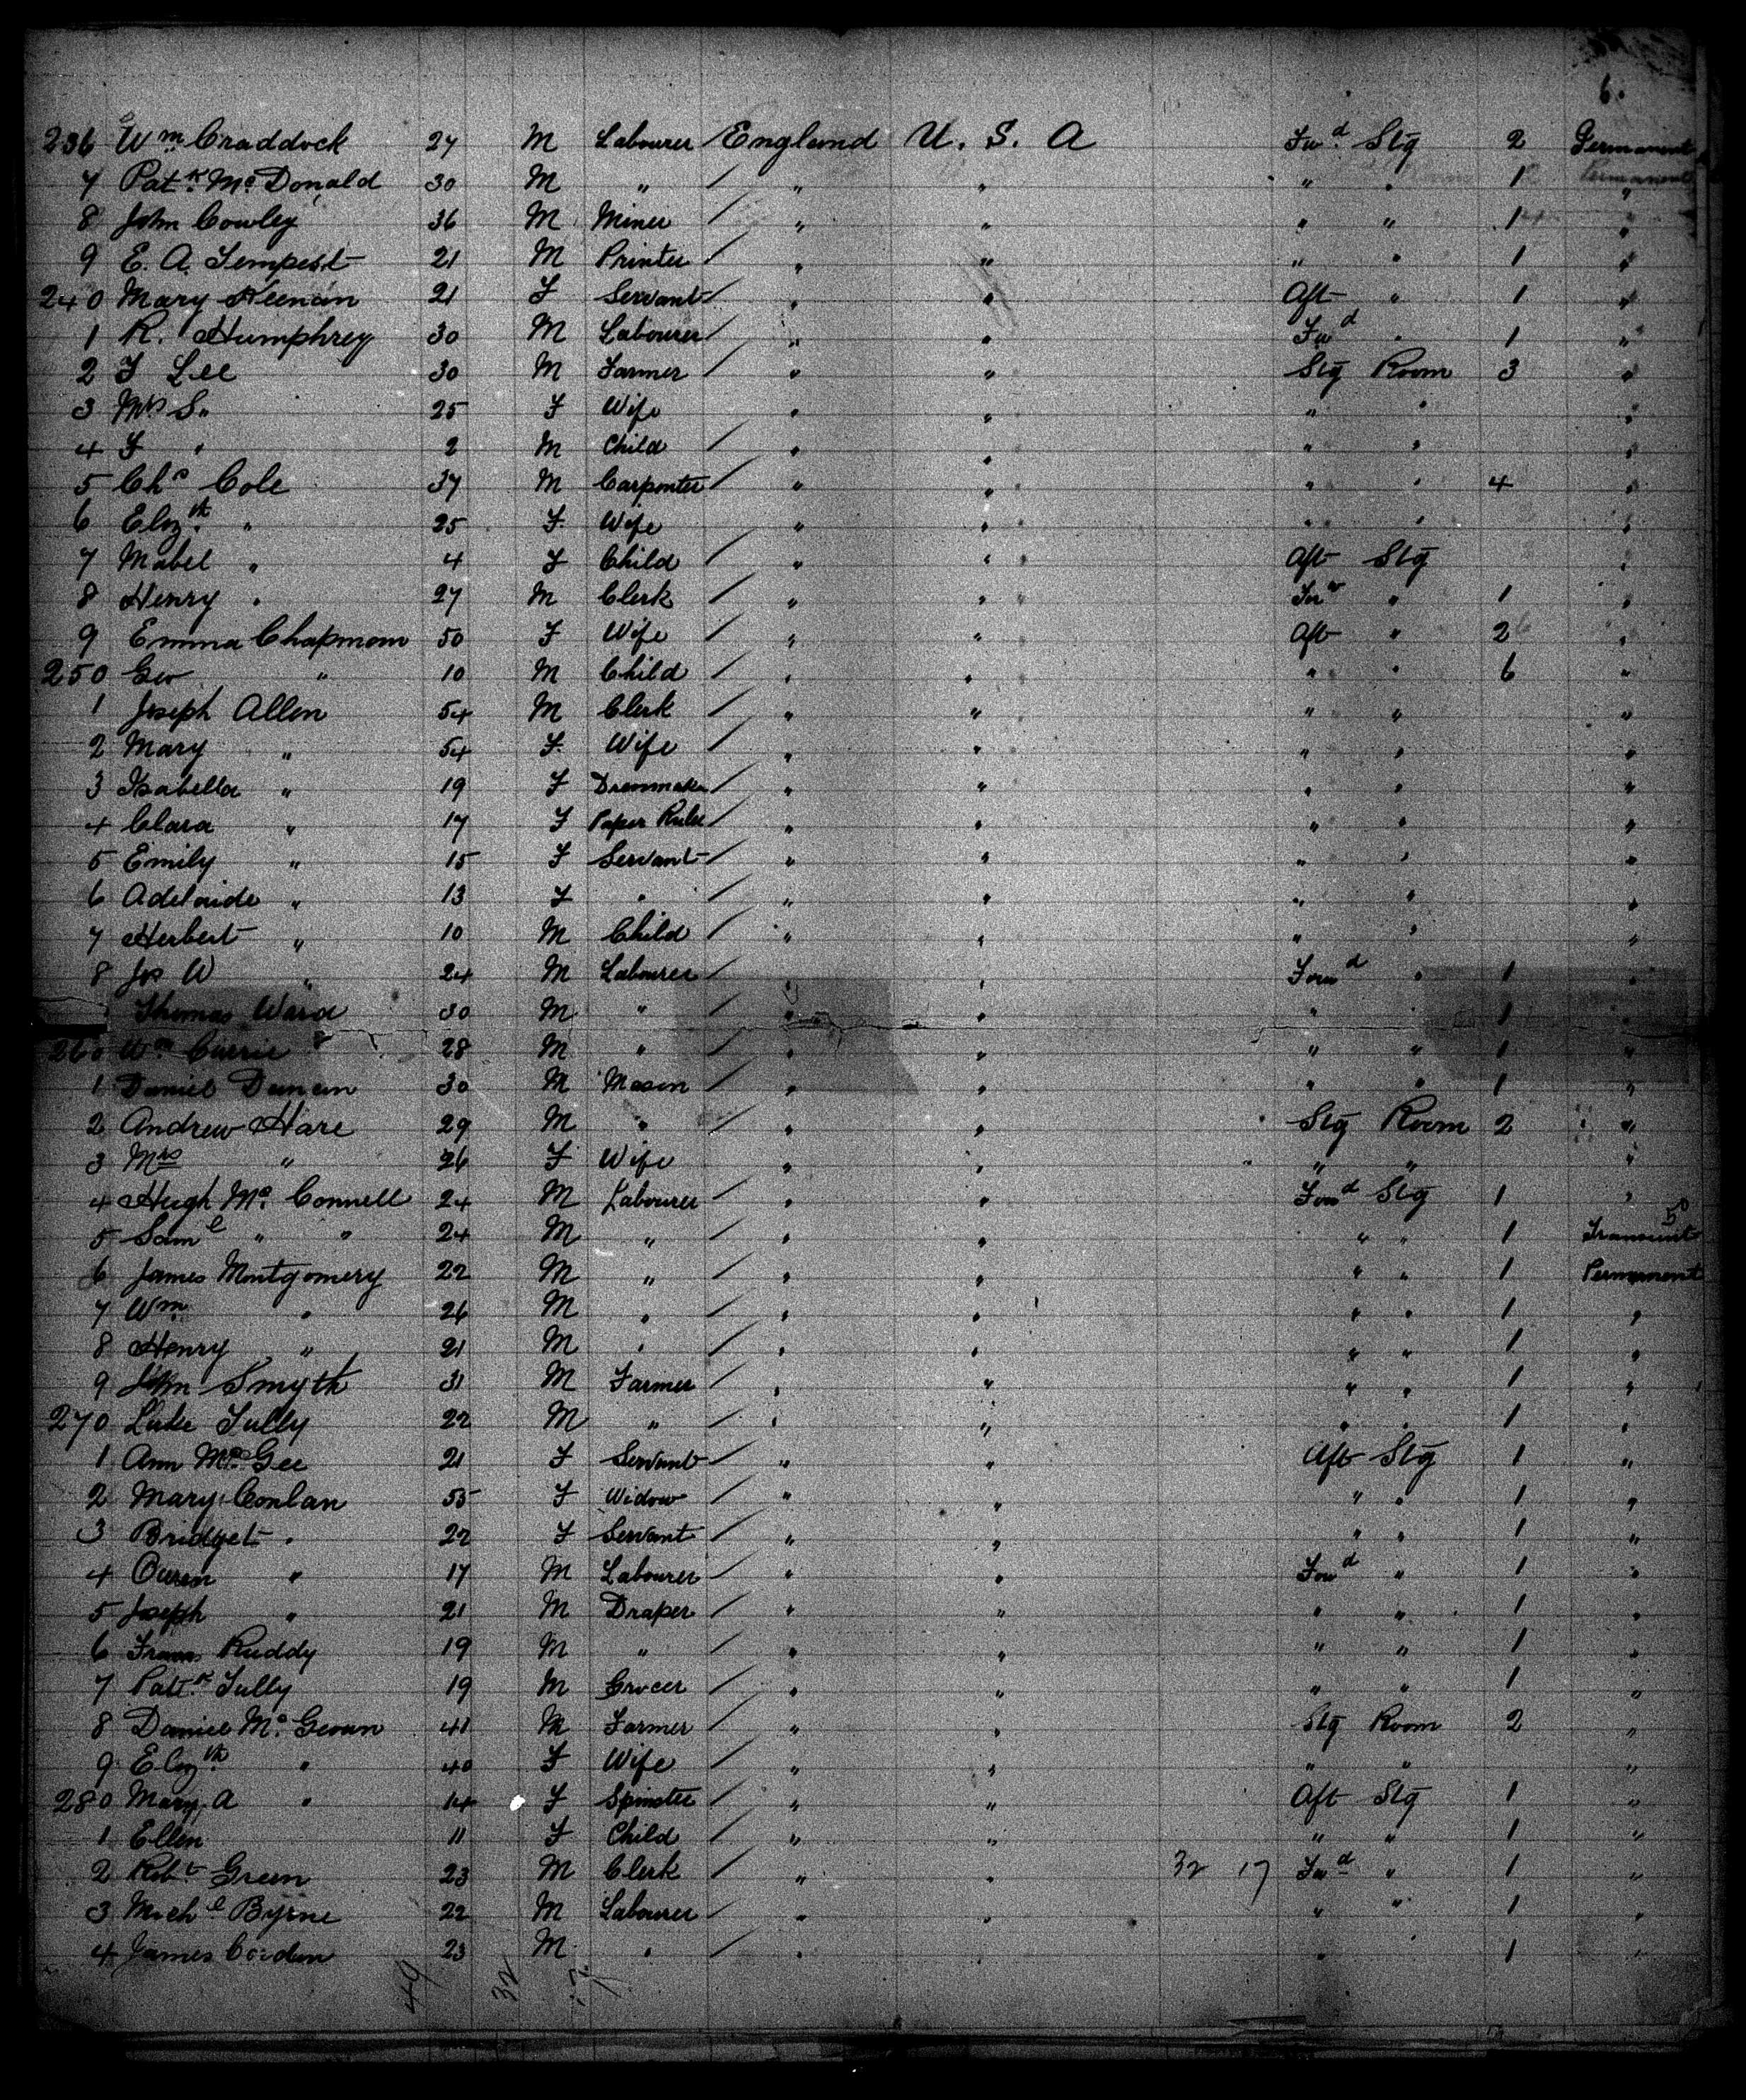 6.
236 Wm. Craddock 27 M Labourer / England U. S. A Fwd. Stg 2 Permanent
7 Patk. Mc Donald 30 M " / " " " " 1 "
8 John Cowley 36 M Miner / " " " " 1 "
9 E. A. Tempest 21 M Printer / " " " " 1 "
240 Mary Keenan 21 F Servant / " " Aft " 1 "
1 R. Humphrey 30 M Labourer / " " Fwd " 1 "
2 F Lee 30 M Farmer / " " Stg Room 3 "
3 Mrs S. " 25 F Wife " " " " "
4 F " 2 M Child / " " " " "
5 Chs Cole 37 M Carpenter / " " " " 4 "
6 Elizth. " 25 F Wife " " " " "
7 Mabel " 4 F Child / " " Aft Stg "
8 Henry " 27 M Clerk / " " " 1 "
9 Emma Chapmom 50 F Wife / " " Aft " 2 "
250 Geo " 10 M Child / " " " " 6 "
1 Joseph Allen 54 M Clerk / " " " " "
2 Mary " 54 F. Wife / " " " " "
3 Isabella " 19 F Dressmaker / " " " " "
4 Clara " 17 F Paper Ruler / " " " " "
5 Emily " 15 F Servant / " " " " "
6 Adelaide " 13 F " / " " " " "
7 Herbert " 10 M Child / " " " " "
8 Jos W " 24 M Labourer / " " Forwd " 1 "
Thomas Ward 30 M " / " " " " 1 "
260 Wm Currie 28 M " / " " " " 1 "
1 Daniel Duncan 30 M Mason / " " " " 1 "
2 Andrew Hare 29 M " / " " Stg Room 2 "
3 Mrs " 26 F Wife / " " " " "
4 Hugh Mc. Connell 24 M Labourer / " " Forwd Stg 1 "
5 Saml " " 24 M " / " " " " 1 Transient
6 James Montgomery 22 M " / " " " " 1 Permanent
7 Wm. " 26 M " / " " " " 1 "
8 Henry " 21 M " / " " " " 1 "
9 John Smyth 31 M Farmer / " " " " 1 "
270 Luke Tully 22 M " / " " " " 1 "
1 Ann Mc. Gee 21 F Servant / " " Aft Stg 1 "
2 Mary Conlan 55 F Widow / " " " " 1 "
3 Bridget " 22 F Servant / " " " " 1 "
4 Owen " 17 M Labourer / " " Forwd " 1 "
5 Joseph " 21 M Draper / " " " " 1 "
6 Frans Ruddy 19 M " / " " " " 1 "
7 Patk. Tully 19 M Grocer / " " " " 1 "
8 Daniel Mc. Geown 41 M Farmer / " " Stg Room 2 "
9 Elizth. " 40 F Wife / " " " " "
280 Mary A " 14 F Spinster / " " Aft Stg 1 "
1 Ellen 11 F Child / " " " " 1 "
2 Robt Green 23 M Clerk / " " 32 17 Fwd " 1 "
3 Michl Byrne 22 M Labourer / " " " " 1 "
4 James 23 M " / " " 1 "
49 32 17